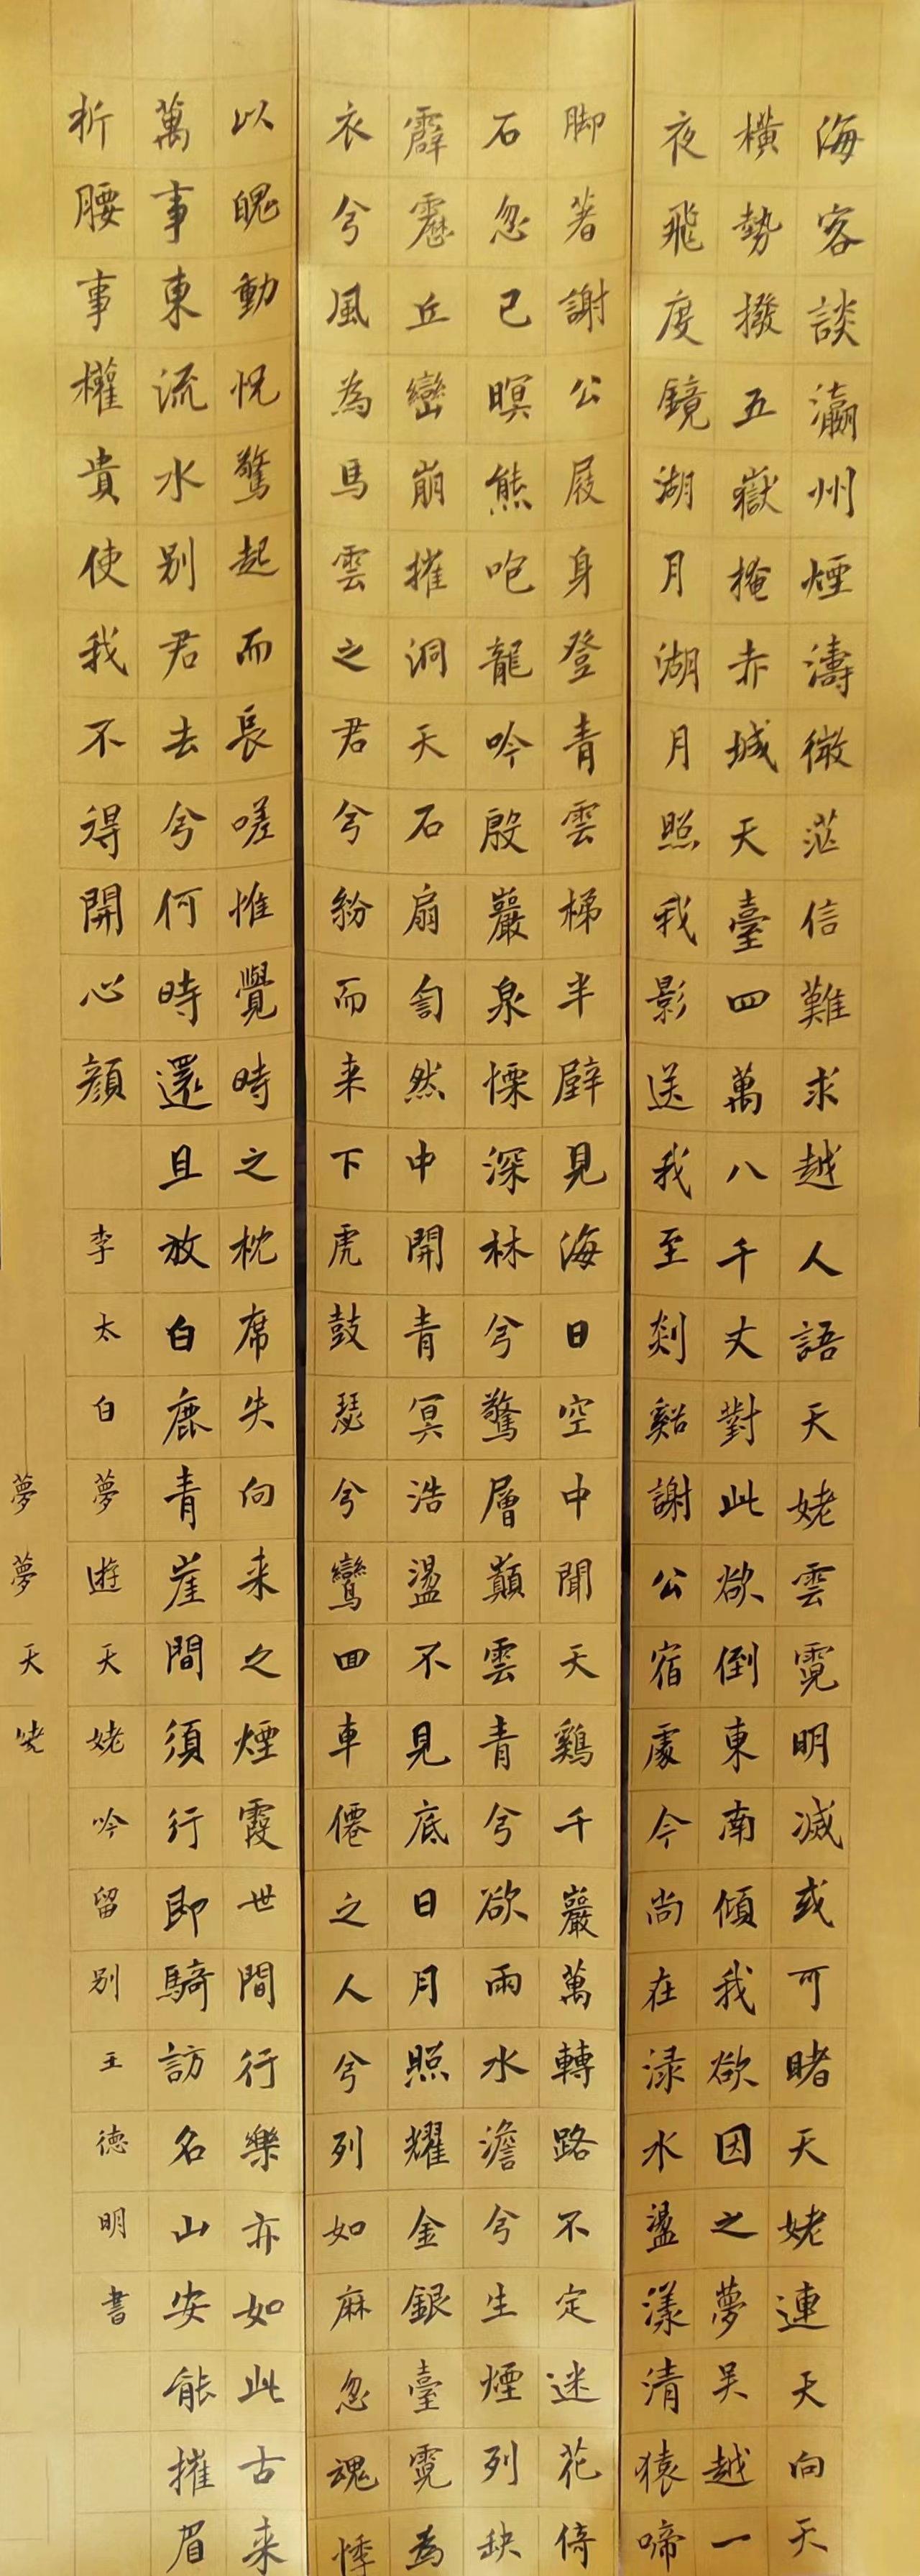 海客談瀛州煙濤微茫信難求越人語天姥雲霓明滅或可睹天姥連天向天
橫勢撥五嶽掩赤城天臺四萬八千丈對此欲倒東南傾我欲因之夢吴越一
夜飛度鏡湖月湖月照我影送我至剡谿謝公宿處今尚在渌水盪漾清猿啼
脚著謝公屐身登青雲梯半壁見海日空中聞天鷄千巖萬轉路不定迷花倚
石忽已暝熊咆龍吟殷巖泉慄深林兮驚層巔雲青兮欲雨水澹兮生煙列缺
霹靂丘巒崩摧洞天石扇訇然中開青冥浩盪不見底日月照耀金銀臺霓為
衣兮風為馬雲之君兮紛而来下虎鼓瑟兮鸞回車僊之人兮列如麻忽魂悸
以魄動怳驚起而長嗟惟覺時之枕席失向来之煙霞世間行樂亦如此古来
萬事東流水别君去兮何時還且放白鹿青崖間須行即騎訪名山安能摧眉
折腰事權貴使我不得開心顔 李太白夢遊天姥吟留别 王德明書
夢夢天姥